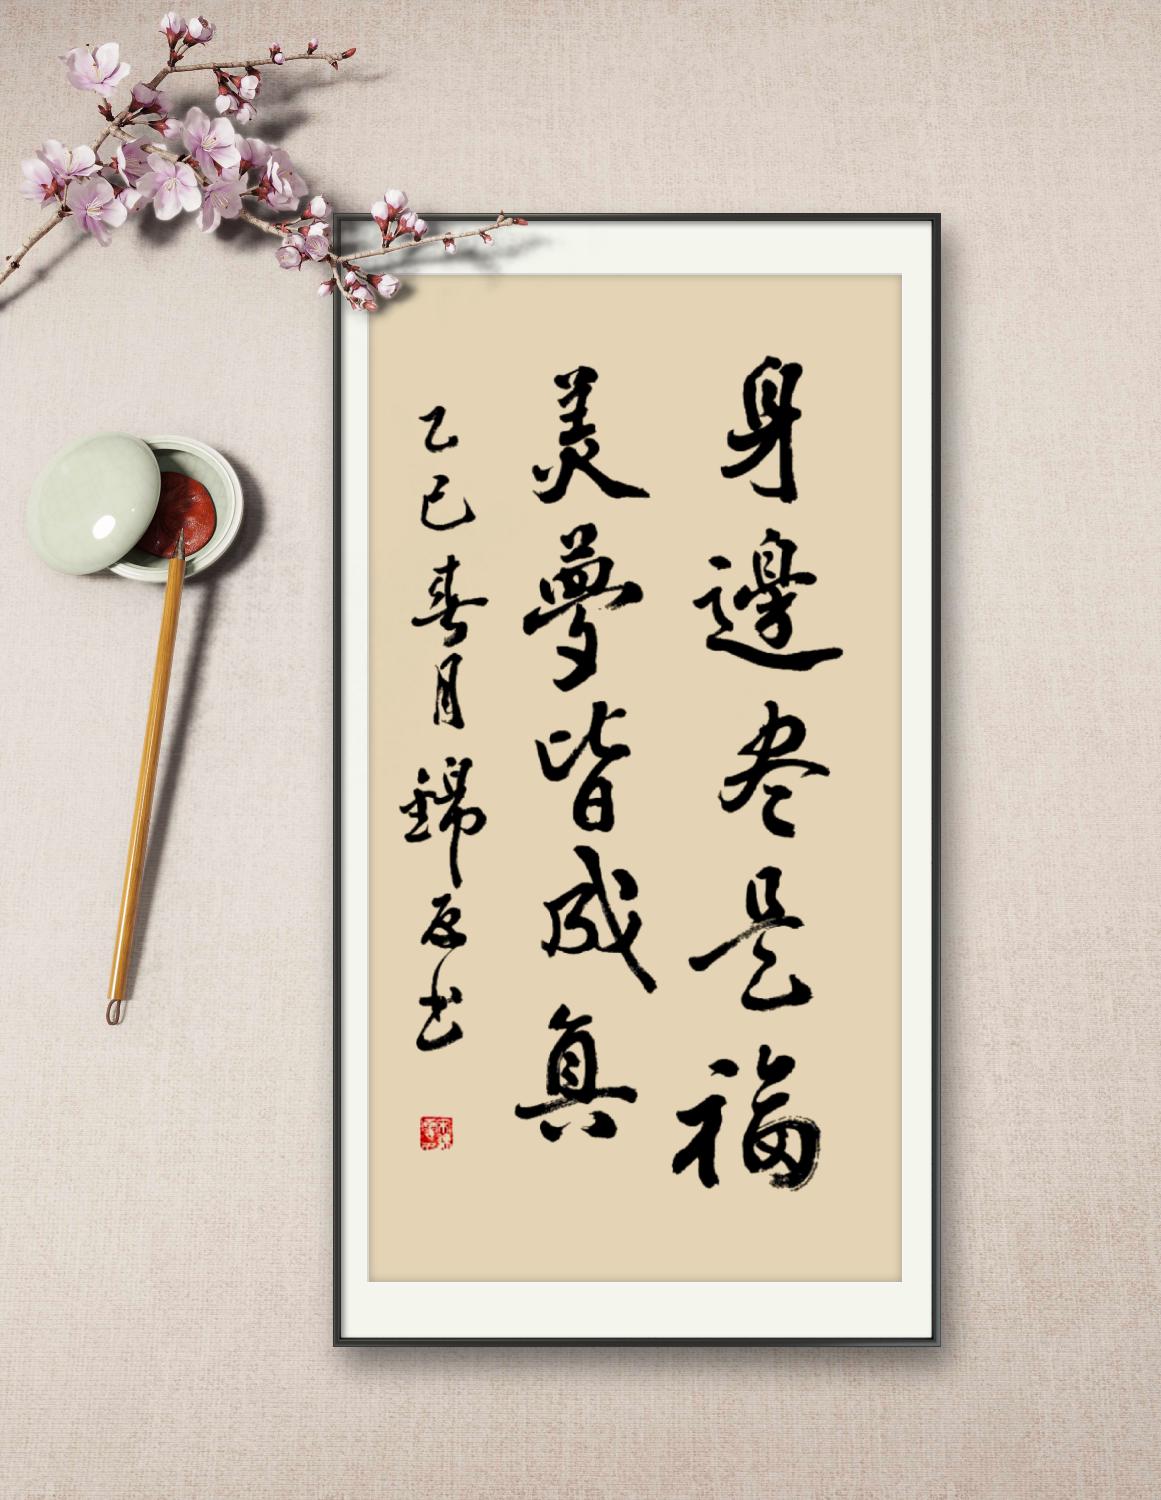 身邊尽是福
美夢皆成真
乙巳春月錦辰书